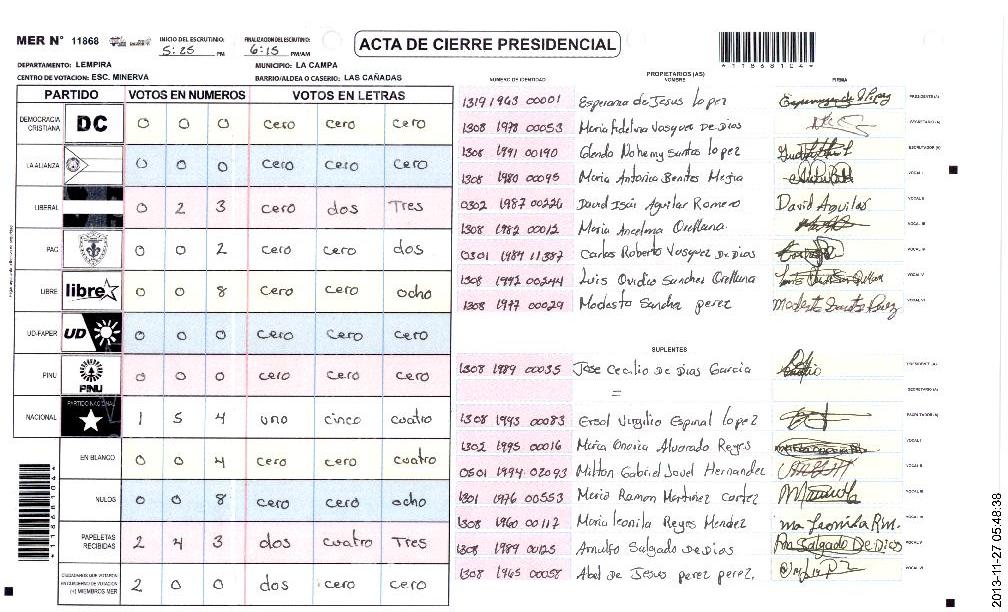 MER N° 11868 INICIO DEL ESCRUTINIO: 5:25 PM FINALIZACION DEL ESCRUTINIO: 6:15 PM/AM
ACTA DE CIERRE PRESIDENCIAL
*11868104*
DEPARTAMENTO: LEMPIRA MUNICIPIO: LA CAMPA
CENTRO DE VOTACION: ESC. MINERVA BARRIO/ALDEA O CASERIO: LAS CAÑADAS
PARTIDO VOTOS EN NUMEROS VOTOS EN LETRAS
DEMOCRACIA CRISTIANA DC 0 0 0 cero cero cero
LA ALIANZA 0 0 0 cero cero cero
LIBERAL 0 2 3 cero dos Tres
PAC 0 0 2 cero cero dos
LIBRE libre 0 0 8 cero cero ocho
UD-FAPER UD 0 0 0 cero cero cero
PINU PINU 0 0 0 cero cero cero
NACIONAL PARTIDO NACIONAL 1 5 4 uno cinco cuatro
EN BLANCO 0 0 4 cero cero cuatro
NULOS 0 0 8 cero cero ocho
PAPELETAS RECIBIDAS 2 4 3 dos cuatro Tres
CIUDADANOS QUE VOTARON EN CUADERNO DE VOTACION (+) MIEMBROS MER 2 0 0 dos cero cero
*11868104*
NUMERO DE IDENTIDAD PROPIETARIOS (AS) NOMBRE FIRMA
1319 1963 00001 Esperanza de Jesus Lopez PRESIDENTE (A)
1308 1978 00053 Maria Fidelina Vasquez De Dias SECRETARIO (A)
1308 1991 00190 Glenda Nohemy Santos Lopez ESCRUTADOR (A)
1308 1980 00095 Maria Antonia Benites Mejia VOCAL I
0302 1987 00226 David Isai Aguilar Romero David Aguilar VOCAL II
1308 1982 00012 Maria Ancelma Orellana VOCAL III
0301 1984 11387 Carlos Roberto Vasquez De Dias VOCAL IV
1308 1992 00244 Luis Ovidio Sanchez Orellana VOCAL V
1308 1977 00029 Modesto Sancha perez VOCAL VI
SUPLENTES
1308 1989 00035 Jose Cecilio De Dias Garcia PRESIDENTE (A)
= SECRETARIO (A)
1308 1993 00083 Ersol Virgilio Espinal Lopez ESCRUTADOR (A)
1302 1995 00016 Maria Onoria Alvarado Reyes VOCAL I
0501 1994 02093 Milton Gabriel Javel Hernandez VOCAL II
1301 1976 00553 Maria Ramon Martinez Cortez VOCAL III
1308 1960 00117 Maria leonila Reyes Mendez ma Leonila R.m. VOCAL IV
1308 1989 00125 Arnulfo Salgado De Dias Salgado De Dios VOCAL V
1308 1965 00058 Abel de Jesus perez perez. VOCAL VI
2013-11-27 05:48:38